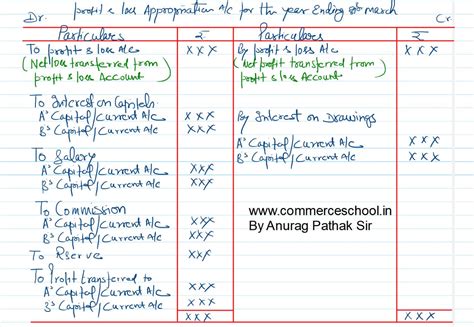 profit & loss Appropriation A/c for the year Ending 31st March
Dr. Cr.
Particulars ₹ Particulars ₹
To profit & loss A/c xxx By profit & loss A/c xxx
(Net loss transferred from (Net profit transferred from
profit & loss Account) profit & loss Account)
To Interest on Capital:
A's Capital/Current A/c xxx By Interest on Drawings
B's Capital/Current A/c xxx A's Capital/Current A/c xxx
To Salary B's Capital/Current A/c xxx
A's Capital/Current A/c xxx
B's Capital/Current A/c xxx
To Commission
A's Capital/Current A/c xxx www.commerceschool.in
B's Capital/Current A/c xxx By Anurag Pathak Sir
To Rserve xxx
To Profit transferred to
A's Capital/Current A/c xxx
B's Capital/Current A/c xxx
xxx xxx